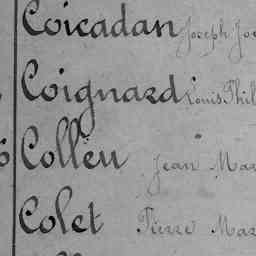 Coicadan Joseph
Coignard Louis Phil
Collen Jean Mar
Colet Pierre Mar